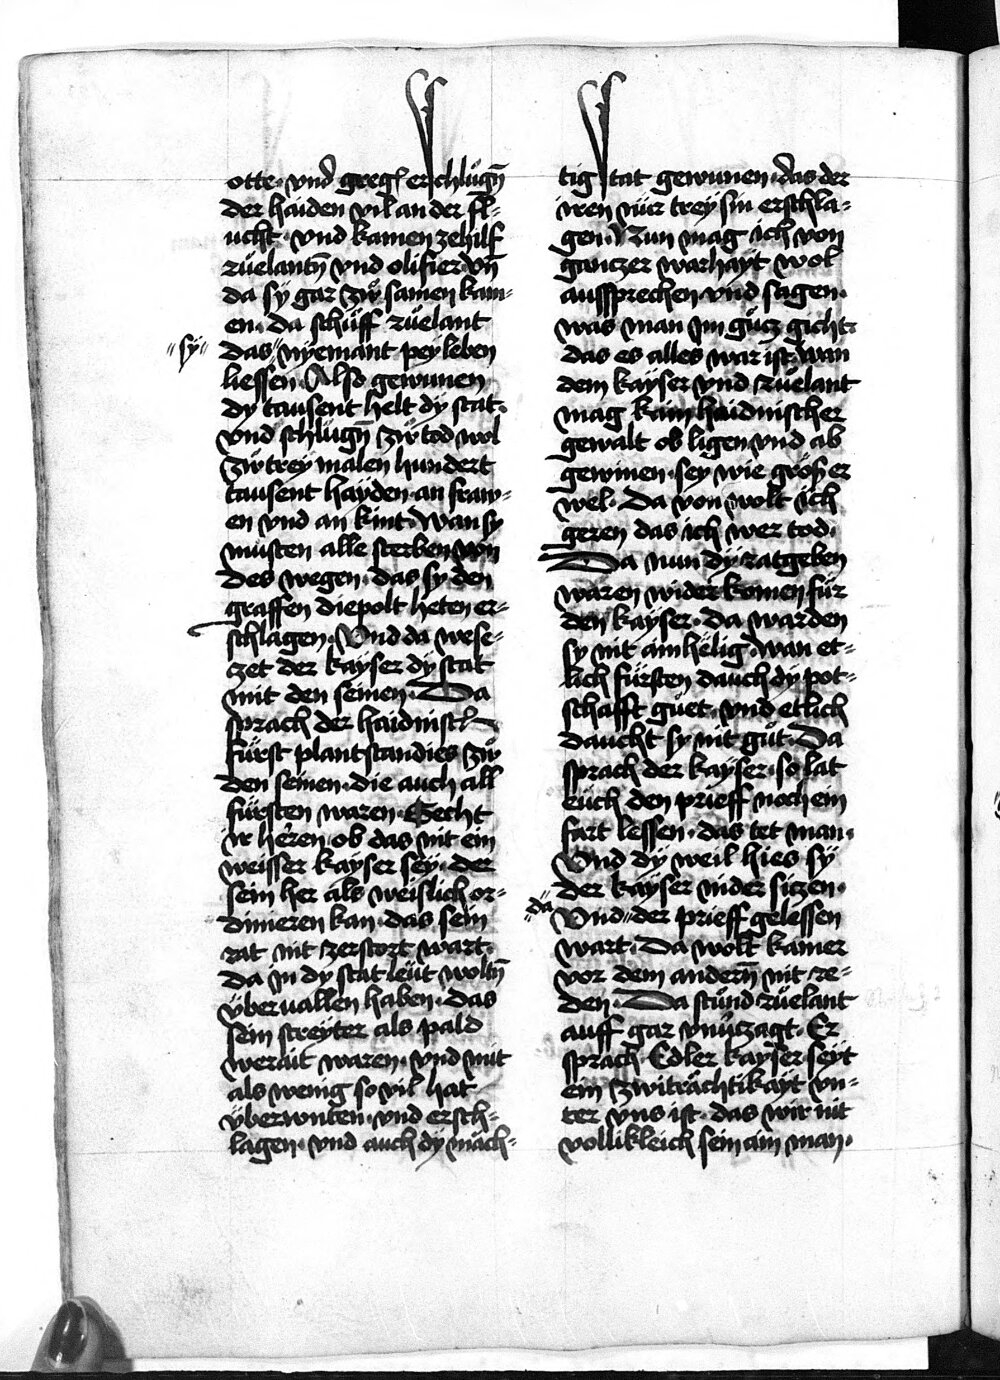 otte· vnd greg erschlŭgn̄
der haiden vil an der fl-
ucht· vnd kamen ze hilf
rŭelantn̄ vnd olifier· vn̄
da sÿ gar zŭ samen kam-
en· da schŭff rŭelant
"sÿ"
das" nÿemant peÿ leben
liessen· Also gewunen
dy tausent helt dÿ stat·
vnd schlŭgn̄ zŭ tod wol
zŭ treÿ malen hundert
tausent haÿden· an fraw-
en vnd an kint· wan sy
musten alle sterben von
des wegen· das sy den
graffen diepolt heten er-
schlagen· Vnd da wese-
czet der kaÿser dÿ stat
mit den seinen· Da
sprach der haidnisch
fürst plantstandies zŭ
den seinen· die auch all
fürsten waren· Secht
ir heren· ob das nit ein
weisser kaÿser seÿ· der
sein her als weislich or-
dinieren kan· das sein
rat nit zerstort wart·
da jn dy stat leüt woltn̄
übervallen haben· das
sein streÿter als pald
werait waren· vnd mit
als wenig so vil hat
überwnten· vnd ersch-
lagen· vnd auch dÿ mäch-
tig stat gewunen· das der
iren nür treÿ sin erschla-
gen· Nun mag ich von
ganczer warhaÿt wol
aussprechen vnd sagen·
was man jm gŭcz gicht·
das es alles war ist· wan
dem kaÿser vnd rŭelant
mag kain haidnischer
gewalt ob ligen vnd ab
gewinen· seÿ wie gros er
wel· Da von wolt ich
geren das ich wer tod·
Da nun dÿ ratgeben
waren wider komen für
den kaÿser· da warden
sy nit ainhëlig· wan et-
lich fürsten dauch dÿ pot-
schafft gŭet· vnd etlich
daucht sy nit gŭt· Da
sprach der kaÿser· so lat
eüch den prieff noch ein
fart lessen· das tet man·
Vnd dÿ weil hies sÿ
der kaÿser nider siczen·
"da"
Vnd" der prieff gelessen
wart· Da wolt kainer
vor dem andern̄ nit re-
den· Da stŭnd rŭelant
auff gar vnŭczagt· Er
sprach· Edler kaÿser· seÿt
ein zwiträchtikaÿt vn-
ter vns ist· das wir nit
vollikleich sein am man·